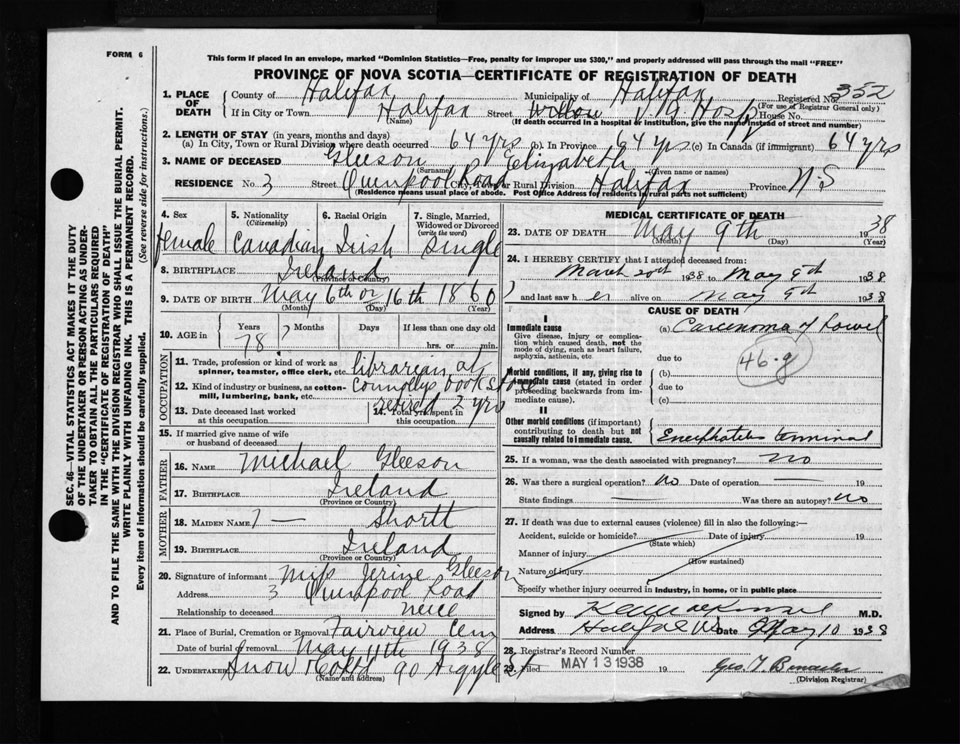 FORM 6
This form if placed in an envelope, marked "Dominion Statistics—Free, penalty for improper use $300," and properly addressed will pass through the mail "FREE"
PROVINCE OF NOVA SCOTIA—CERTIFICATE OF REGISTRATION OF DEATH
1. PLACE OF DEATH County of Halifax Municipality of Halifax Registered No. 352
(For use of Registrar General only)
If in City or Town Halifax Street V.G. Hosp House No.
(Name) (If death occurred in a hospital or institution, give the name instead of street and number)
2. LENGTH OF STAY (in years, months and days)
(a) In City, Town or Rural Division where death occurred 64 yrs (b). In Province 64 yrs (c) In Canada (if immigrant) 64 yrs
3. NAME OF DECEASED Gleeson Elizabeth
(Surname) (Given name or names)
RESIDENCE No. 3 Street Quinpool Road City, Town or Rural Division Halifax Province N.S
(Residence means usual place of abode. Post Office Address for residents in rural parts not sufficient)
4. Sex 5. Nationality (Citizenship) 6. Racial Origin 7. Single, Married, Widowed or Divorced (write the word)
female Canadian Irish Single
8. BIRTHPLACE Ireland
(Province or Country)
9. DATE OF BIRTH May 6th or 16th 1860
(Month) (Day) (Year)
10. AGE in Years Months Days If less than one day
78 ? hrs. or min.
OCCUPATION
11. Trade, profession or kind of work as spinner, teamster, office clerk, etc. librarian at
12. Kind of industry or business, as cotton-mill, lumbering, bank, etc. Connollys book store
retired 2 yrs
13. Date deceased last worked at this occupation
14. Total yrs. spent in this occupation
15. If married give name of wife or husband of deceased
FATHER
16. NAME Michael Gleeson
17. BIRTHPLACE Ireland
(Province or Country)
MOTHER
18. MAIDEN NAME ? — Shortt
19. BIRTHPLACE Ireland
(Province or Country)
20. Signature of informant Miss Gleeson
Address 3 Quinpool Road
Relationship to deceased neice
21. Place of Burial, Cremation or Removal Fairview Cem
Date of burial or removal May 11th 1938
22. UNDERTAKER Snow & Co Ltd 90 Argyle St
(Name and address)
MEDICAL CERTIFICATE OF DEATH
23. DATE OF DEATH May 9th 1938
(Month) (Day) (Year)
24. I HEREBY CERTIFY that I attended deceased from:
March 20th 1938 to May 9th 1938
and last saw her alive on May 9th 1938
CAUSE OF DEATH
I
Immediate cause
Give disease, injury or complication which caused death, not the mode of dying, such as heart failure, asphyxia, asthenia, etc.
(a) Carcinoma of bowel
due to
46-g
Morbid conditions, if any, giving rise to immediate cause (stated in order proceeding backwards from immediate cause).
(b)
due to
(c)
II
Other morbid conditions (if important) contributing to death but not causally related to immediate cause.
terminal
25. If a woman, was the death associated with pregnancy? no
26. Was there a surgical operation? no Date of operation — 19
State findings — Was there an autopsy? no
27. If death was due to external causes (violence) fill in also the following:—
Accident, suicide or homicide? Date of injury 19
(State which)
Manner of injury
(How sustained)
Nature of injury
Specify whether injury occurred in industry, in home, or in public place
Signed by M.D.
Address Halifax NS Date May 10 1938
28. Registrar's Record Number
29. Filed MAY 13 1938 19 Geo. T.
(Division Registrar)
SEC. 46—VITAL STATISTICS ACT MAKES IT THE DUTY
OF THE UNDERTAKER OR PERSON ACTING AS UNDER-
TAKER TO OBTAIN ALL THE PARTICULARS REQUIRED
IN THE "CERTIFICATE OF REGISTRATION OF DEATH"
AND TO FILE THE SAME WITH THE DIVISION REGISTRAR WHO SHALL ISSUE THE BURIAL PERMIT.
WRITE PLAINLY WITH UNFADING INK. THIS IS A PERMANENT RECORD.
Every item of information should be carefully supplied. (See reverse side for instructions.)